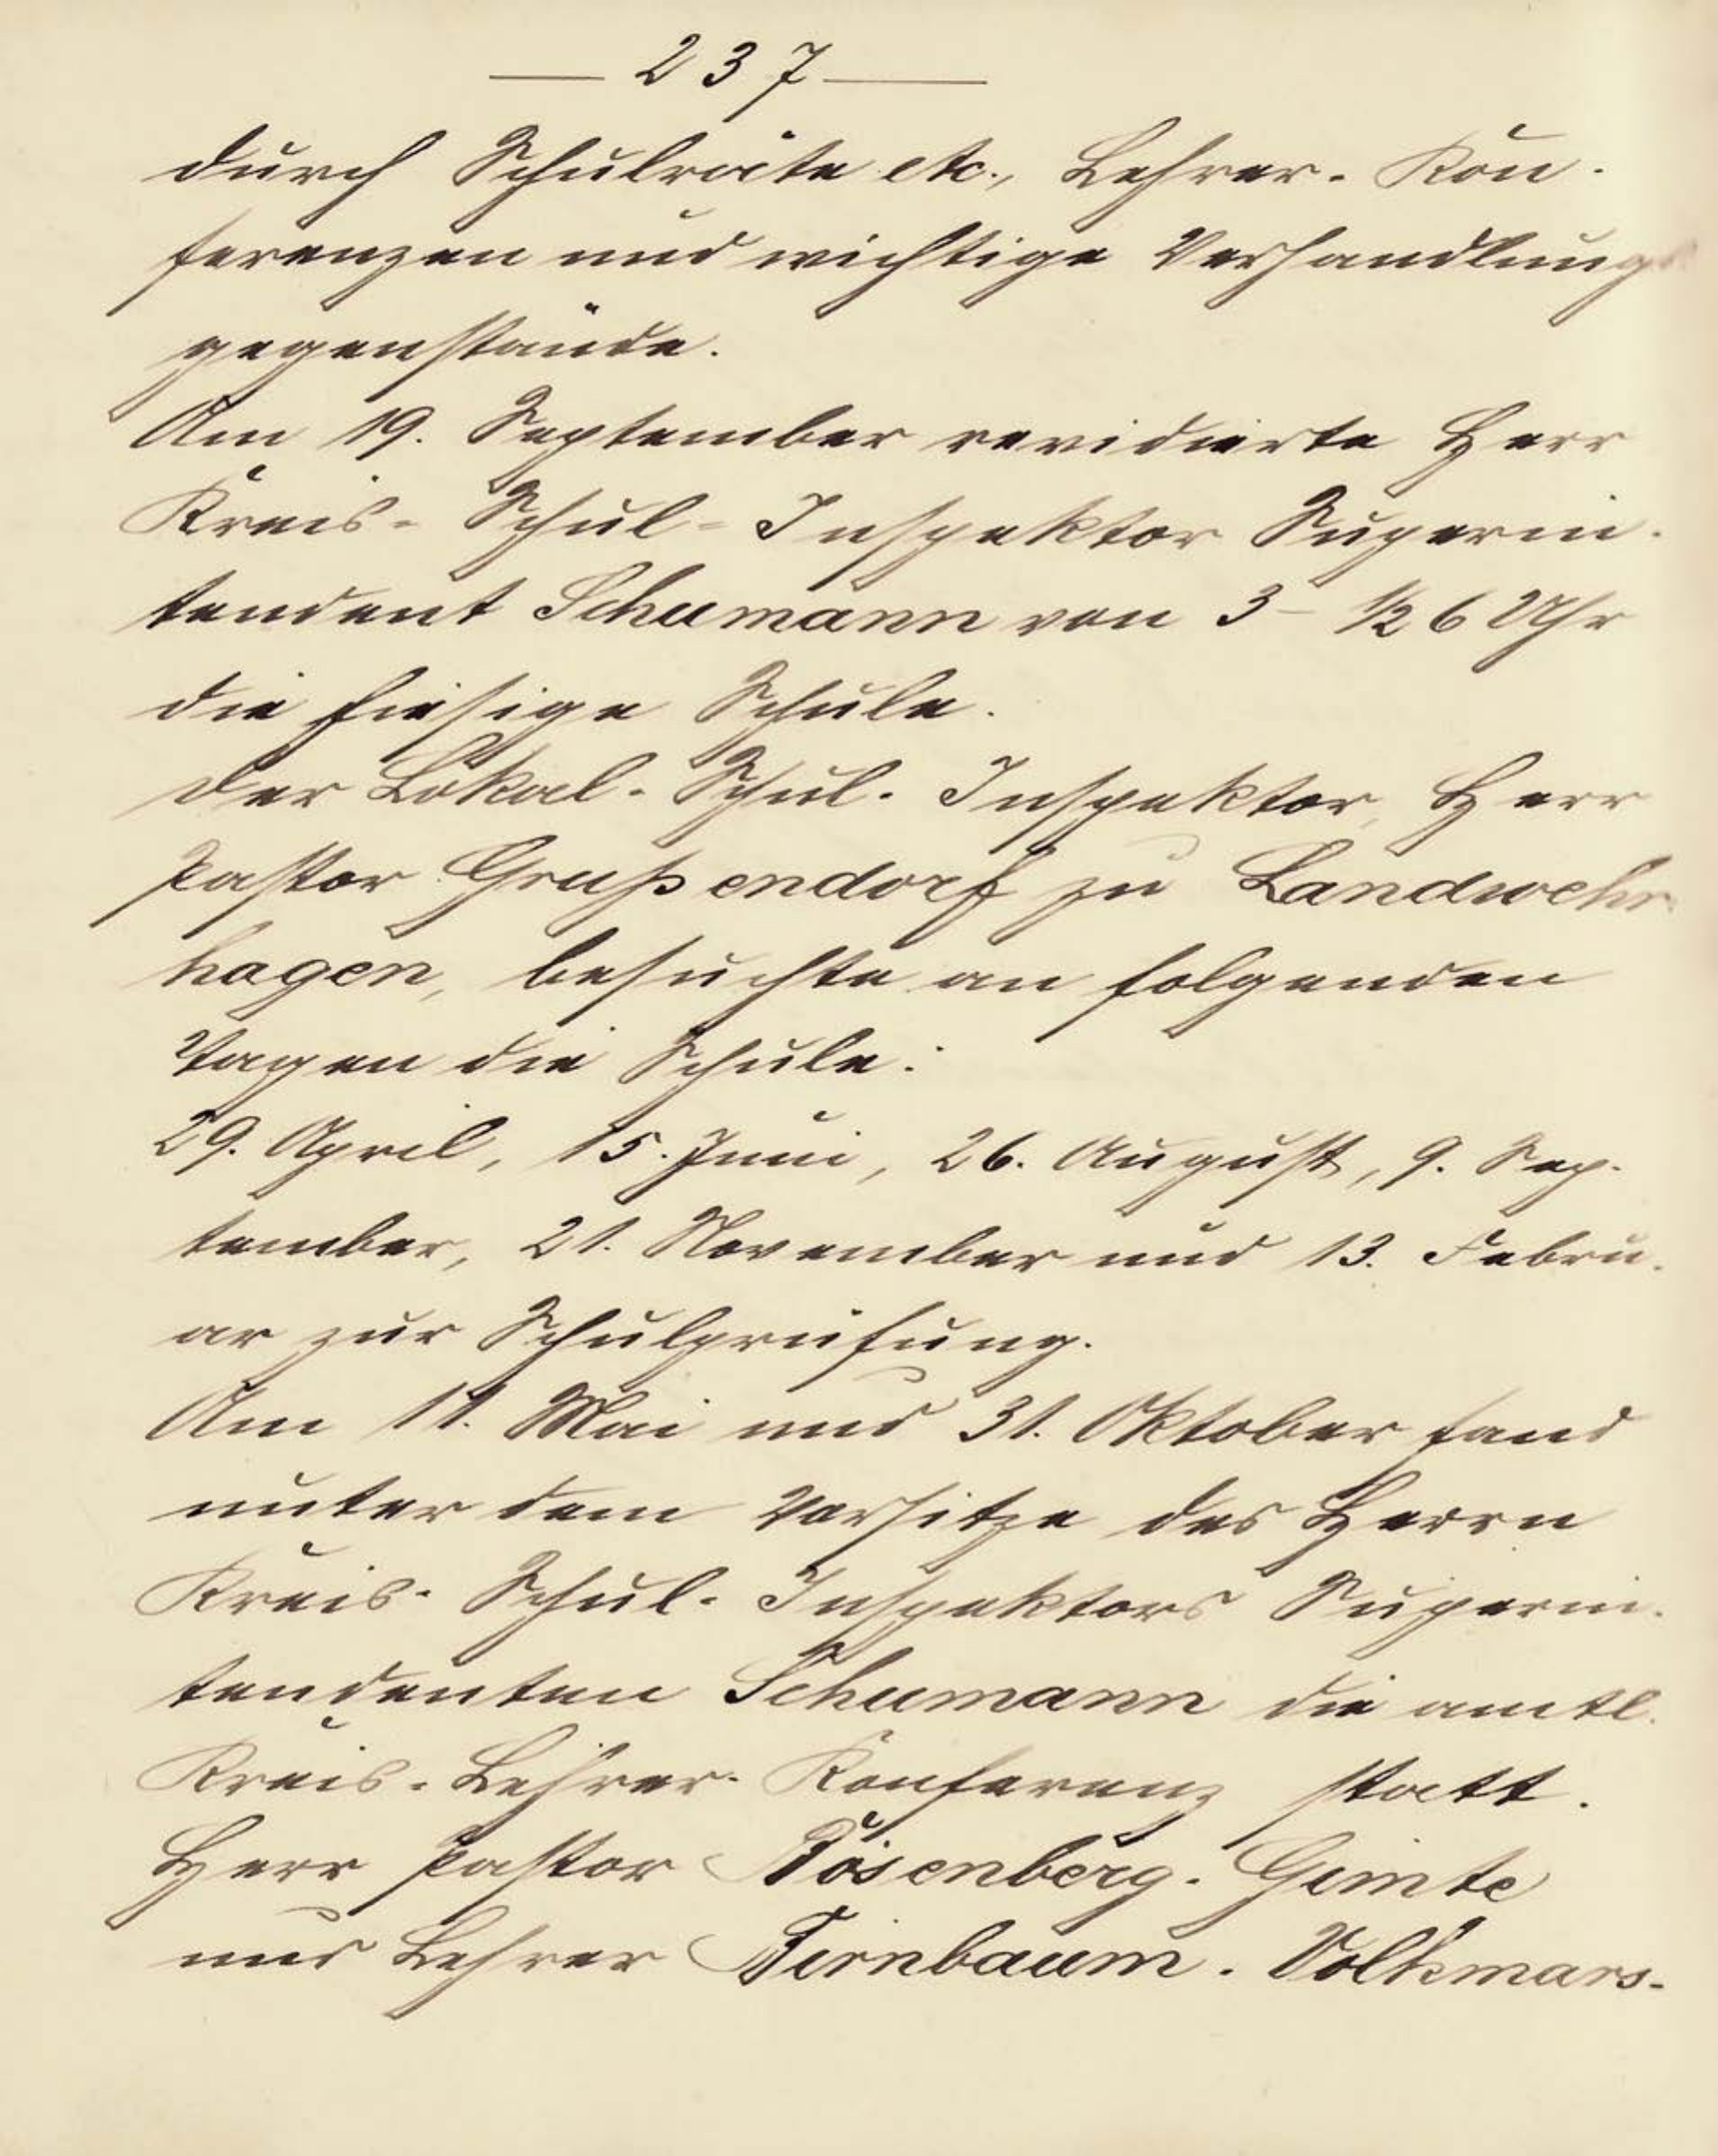 — 237 —
durch Schulräte etc., Lehrer-Kon-
ferenzen und wichtige Verhandlungs
gegenstände.
Am 19. September revidierte Herr
Kreis-Schul-Inspektor Superin-
tendent Schumann von 3–½6 Uhr
die hiesige Schule.
Der Lokal-Schul-Inspektor, Herr
Pastor Grußendorf zu Landwehr
hagen, besuchte an folgenden
Tagen die Schule:
29. April, 15. Juni, 26. August, 9. Sep-
tember, 21. November und 13. Febru-
ar zur Schulprüfung.
Am 11. Mai und 31. Oktober fand
unter dem Vorsitze des Herrn
Kreis-Schul-Inspektors Superin-
tendenten Schumann die amtl.
Kreis-Lehrer-Konferenz statt.
Herr Pastor Rosenberg-Gimte
und Lehrer Birnbaum-Volkmars-